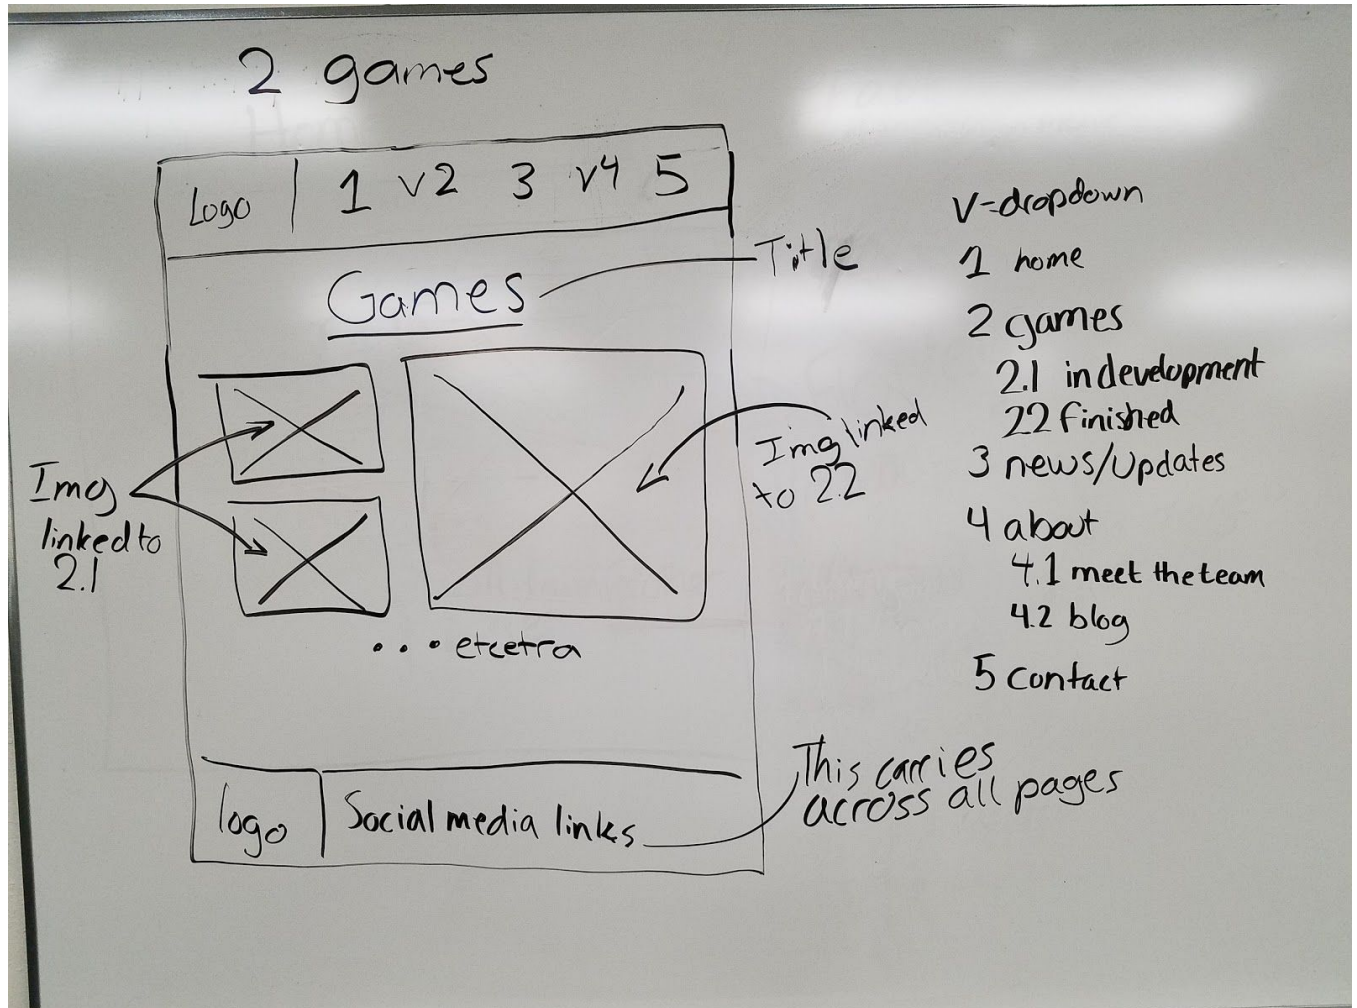 2 games
Logo 1 v2 3 v4 5
Games
Title
Img
linked to
2.1
Img linked
to 2.2
... etcetra
logo
Social media links
This carries
across all pages
V-dropdown
1 home
2 games
2.1 in development
2.2 finished
3 news/updates
4 about
4.1 meet the team
4.2 blog
5 contact